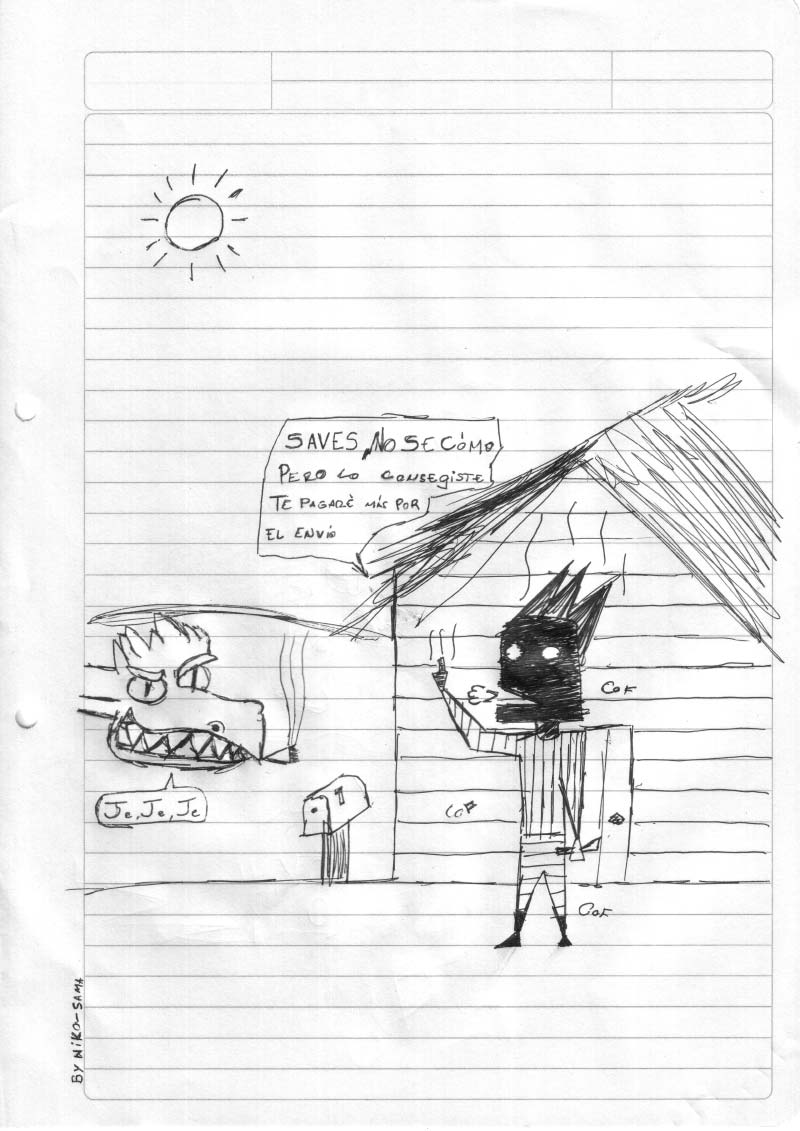 SAVES, NO SE CÓMO
PERO LO CONSEGISTE
TE PAGARÉ MÁS POR
EL ENVÍO
COF
Je, Je, Je
COF
COF
BY NiKO-SAMA